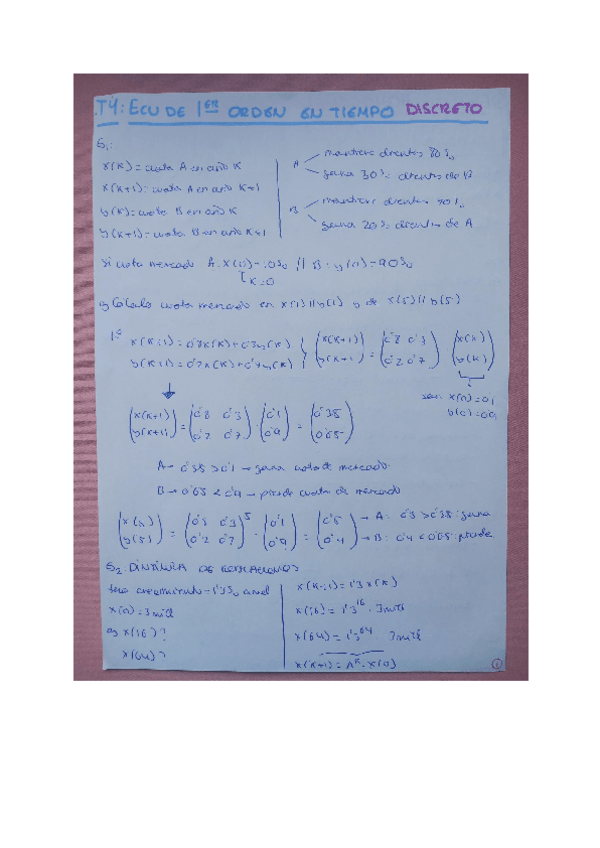 T4: ECU DE 1ER ORDEN EN TIEMPO DISCRETO
x(k) = cuota A en año k
x(k+1) = cuota A en año k+1
y(k) = cuota B en año k
y(k+1) = cuota B en año k+1
A mantiene clientes 80%
gana 30% clientes de B
B mantiene clientes 70%
gana 20% clientes de A
Si cuota mercado A: x(0) = 10% // B: y(0) = 90%
k=0
Calcula cuota mercado en x(1) // y(1) y de x(5) // y(5)
1º x(k+1) = 0'8x(k) + 0'3y(k)
y(k+1) = 0'2x(k) + 0'7y(k)
(x(k+1) y(k+1)) = (0'8 0'3 0'2 0'7) · (x(k) y(k))
x(0) = 0'1
y(0) = 0'9
(x(k+1) y(k+1)) = (0'8 0'3 0'2 0'7) · (0'1 0'9) = (0'35 0'65)
A → 0'35 > 0'1 → gana cuota de mercado
B → 0'65 < 0'9 → pierde cuota de mercado
0'2 0'7)⁵ · (0'1 0'9) =
→ A: gana
→ B: 0'4 < 0'65: pierde
DINÁMICA DE POBLACIONES
tasa crecimiento = 1'3% anual
x(0) = 3 mill
x(16)?
x(64)?
x(k+1) = 1'3 x(k)
x(16) = 1'3¹⁶ · 3 mill
x(64) = 1'3⁶⁴ · 3 mill
x(k+1) = Aᵏ · x(0)
1